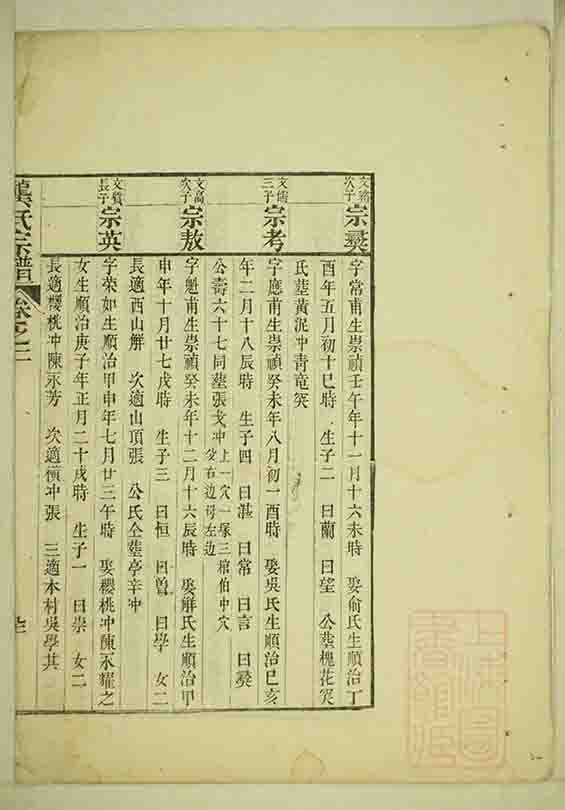 文
次子
宗彛
字常甫生崇禎壬午年十一月十六未時 娶俞氏生順治丁
酉年五月初十巳時 生子二 曰蘭 曰望 公塟槐花冥
氏塟黃泥冲青竜冥
文儒
三子
宗考
字應甫生崇禎癸未年八月初一酉時 娶吳氏生順治己亥
年二月十八辰時 生子四 曰湛 曰常 曰言 曰
公壽六十七同塟張戈冲上一穴一塚三棺伯中穴
父右边母左边
文高
次子
宗敖
字魁甫生崇禎癸未年十二月十六辰時 娶解氏生順治甲
申年十月廿七戌時 生子三 曰恒 曰曾 曰學 女二
長適西山解 次適山頂張 公氏仝塟亭辛冲
文質
長子
宗英
字荣如生順治甲申年七月廿三午時 娶櫻桃冲陳永耀之
女生順治庚子年正月二十戌時 生子一 曰崇 女二
長適櫻桃冲陳永芳 次適橫冲張 三適本村吳學其
龔氏宗譜 卷之二
上海圖書館藏